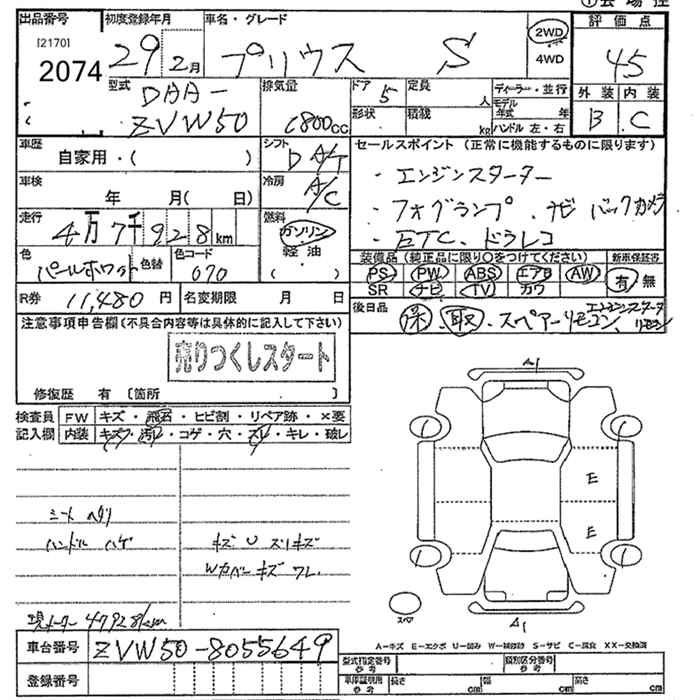 ①会場控
出品番号 初度登録年月 車名・グレード 評価点
[2170]
2074
29 2月 プリウス S 2WD 4WD 45
型式 排気量 ドア 定員 ディーラー・並行
DAA-
ZVW50 1800cc 5 人 モデル年式 年
形状 積載 kg ハンドル 左・右
外装 内装
B C
車歴 シフト セールスポイント (正常に機能するものに限ります)
自家用・( ) D A/T
・エンジンスターター
車検 冷房
年 月( 日) A/C
・フォグランプ、ナビ バックカメラ
走行 燃料
4万7千928km ガソリン
・ETC、ドラレコ
軽油
( )
色 色替 色コード
パールホワイト 070
装備品 (純正品に限り○をつけてください) 新車保証書
PS PW ABS エアB AW 有・無
SR ナビ TV カワ
R券 11,480円 名変期限 月 日
後日品 保、取、スペアーリモコン、エンジンスターターリモコン
注意事項申告欄(不具合内容等は具体的に記入して下さい)
売りつくしスタート
修復歴 有 〔箇所 〕
検査員 FW キズ・飛石・ヒビ割・リペア跡・×要
記入欄 内装 キズ・汚レ・コゲ・穴・スレ・キレ・破レ
A1
E
E
シート ヘタリ
ハンドル ハゲ
キズ U スリキズ
Wカバー キズ ワレ
スペア
A1
現メーター 47928km
A-キズ E-エクボ U-凹み W-補修跡 S-サビ C-腐食 XX-交換済
車台番号 ZVW50-8055649
型式指定番号 参考 類別区分番号 参考
登録番号
車庫証明用 参考 長さ cm 幅 cm 高さ cm